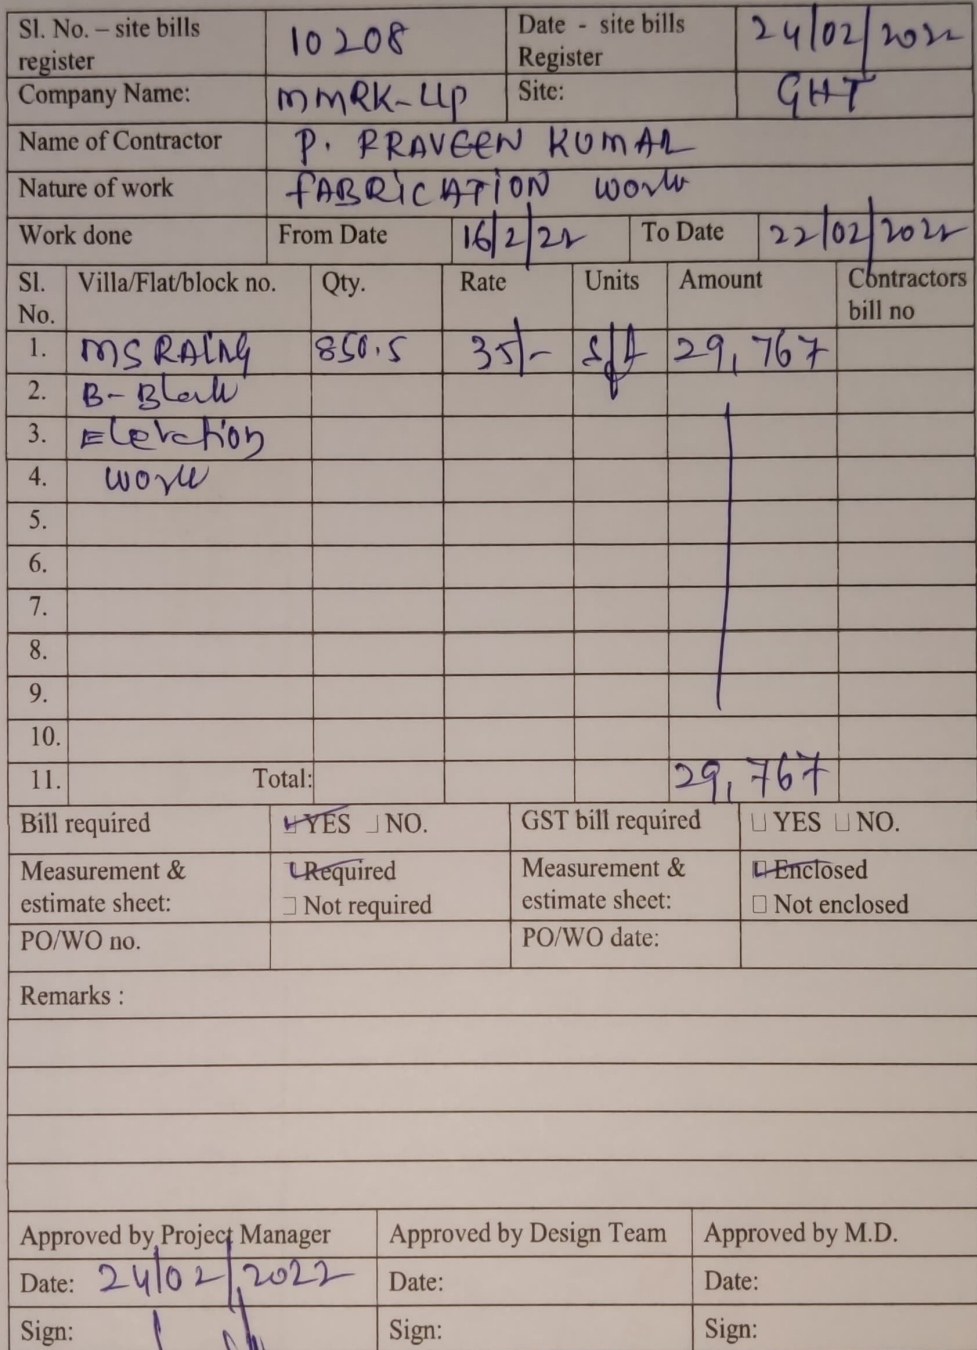 Sl. No. – site bills register 10208 Date - site bills Register 24/02/2022
Company Name: MMRK-LLP Site: GHT
Name of Contractor P. PRAVEEN KUMAR
Nature of work FABRICATION work
Work done From Date 16/2/22 To Date 22/02/2022
Sl. No. Villa/Flat/block no. Qty. Rate Units Amount Contractors bill no
1. MS RAlNg 850.5 35/- sft 29,767
2. B-Block
3. Elevation
4. work
5.
6.
7.
8.
9.
10.
11. Total: 29,767
Bill required YES NO. GST bill required YES NO.
Measurement & estimate sheet: Required Not required Measurement & estimate sheet: Enclosed Not enclosed
PO/WO no. PO/WO date:
Remarks :
Approved by Project Manager Approved by Design Team Approved by M.D.
Date: 24/02/2022 Date: Date:
Sign: Sign: Sign: